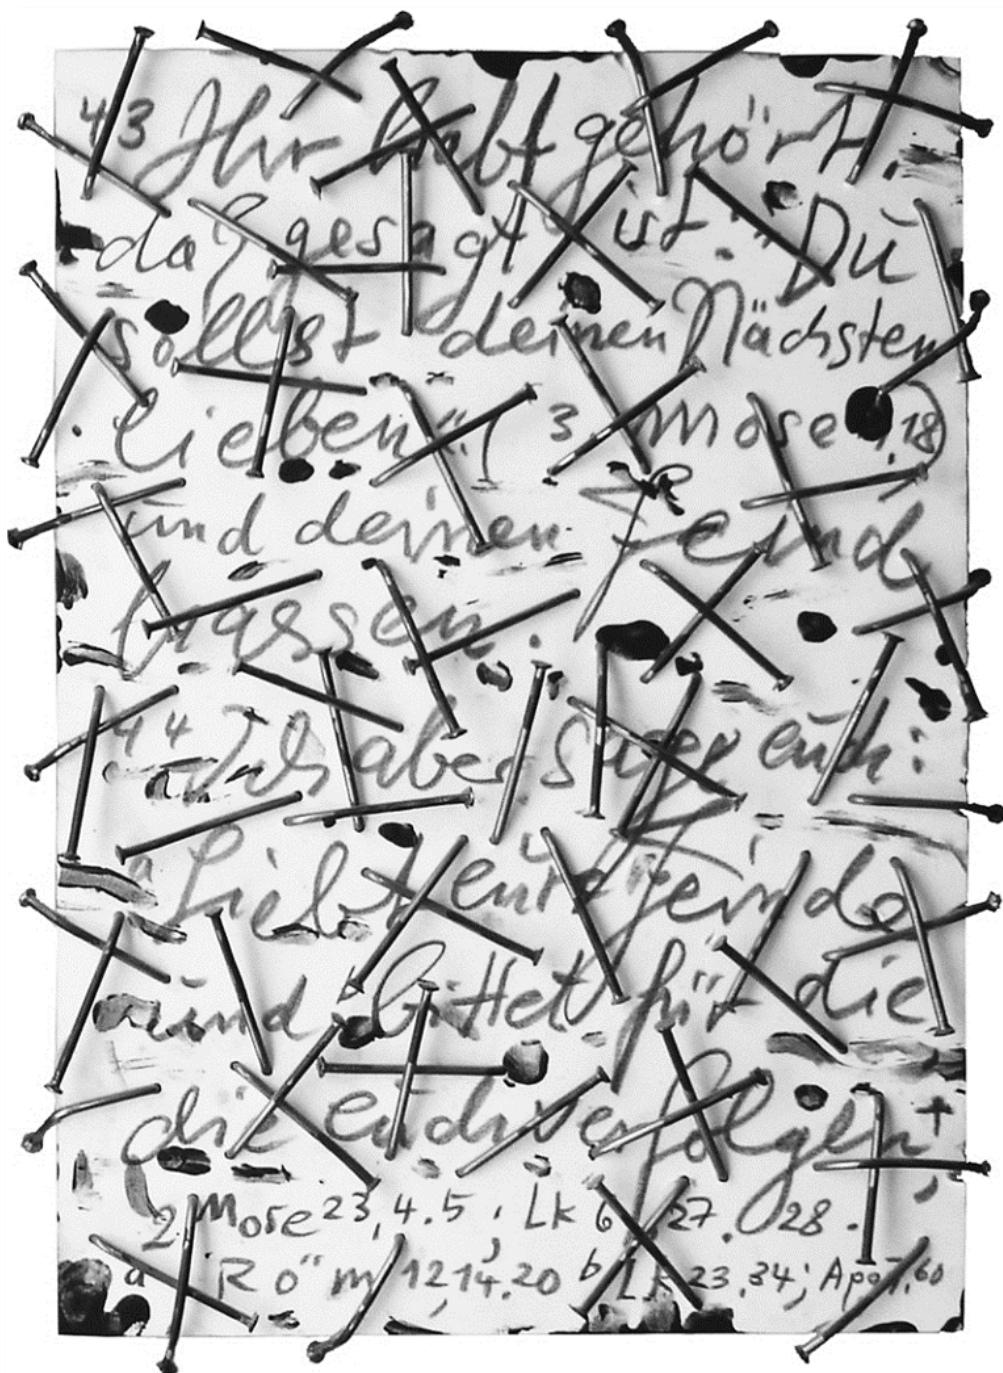 43 Ihr habt gehört,
daß gesagt ist: "Du
sollst deinen Nächsten
lieben" (3 Mose 19,18)
und deinen Feind
hassen.
44 Ich aber sage euch:
a Liebt eure Feinde
und b bittet für die
die euch verfolgen,+
2 Mose 23,4.5; Lk 6,27.28.
a Röm 12,14.20 b Lk 23,34; Apg 7,60